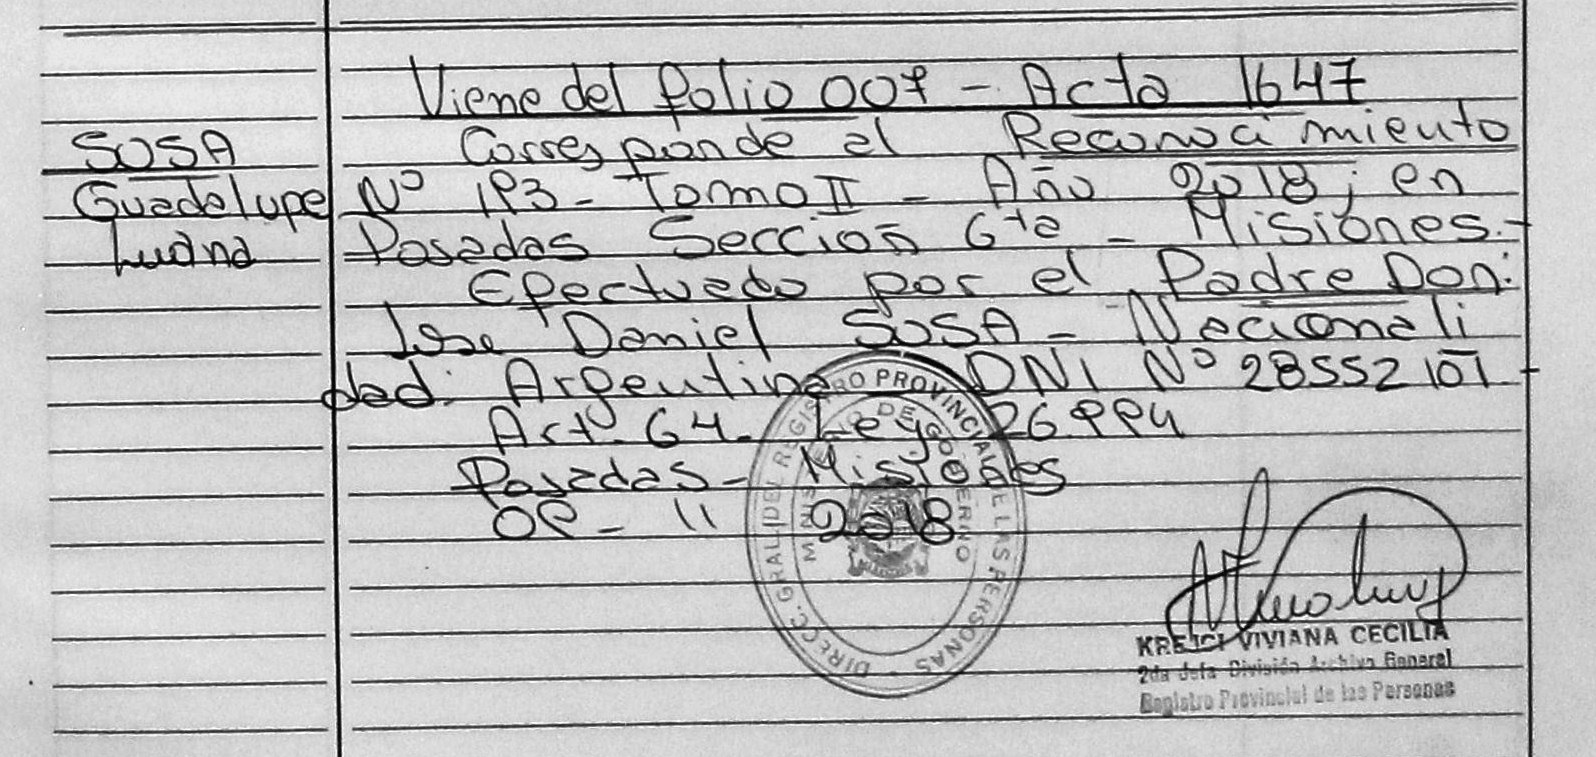 Viene del folio 007 - Acta 1647
SOSA
Guadalupe
Luana
Corresponde al Reconocimiento
Nº 193 - Tomo II - Año 2018; en
Posadas Sección 6ta - Misiones.-
Efectuado por el Padre Don:
Jose Daniel SOSA - Nacionali
dad: Argentina DNI Nº 28552101 -
Art. 64. Ley 26994
Posadas - Misiones
09 - 11 2018
DIRECC. GRAL. DEL REGISTRO PROVINCIAL DE LAS PERSONAS
MINISTERIO DE GOBIERNO
KREJCI VIVIANA CECILIA
2da Jefa División Archivo General
Registro Provincial de las Personas